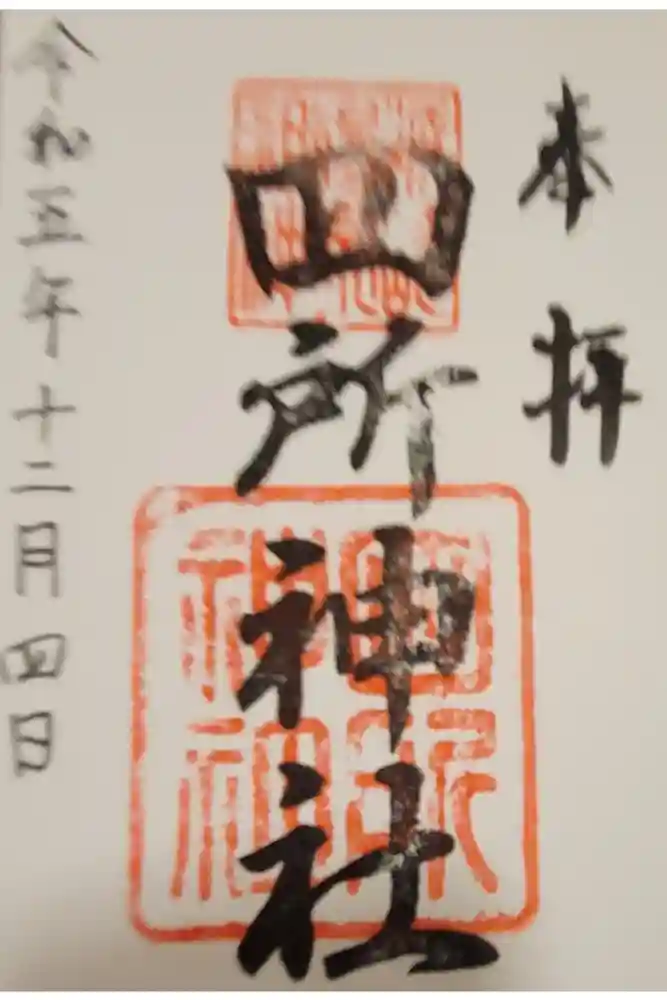 奉拝
四所神社
四所神社
令和五年十二月四日